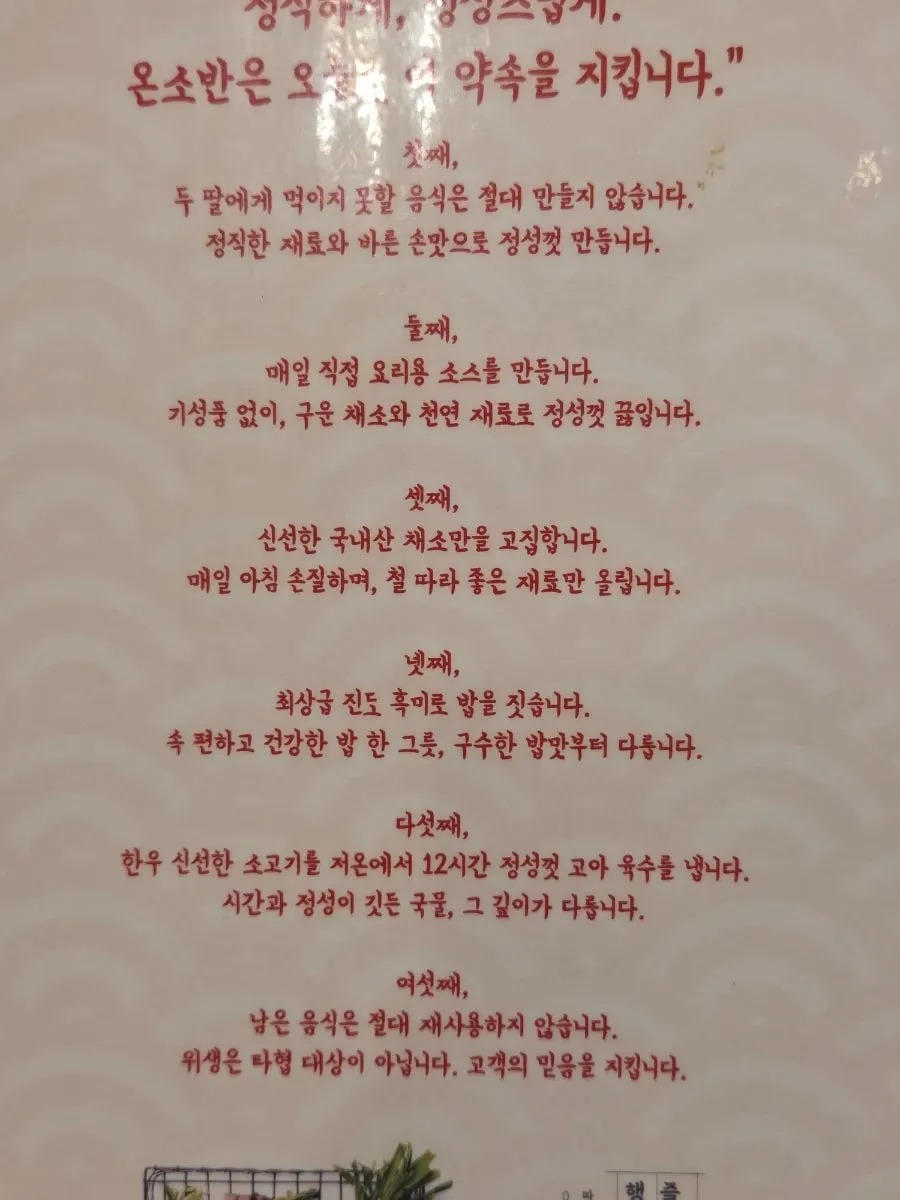 정직하게, 정성스럽게.
온소반은 오늘도 이 약속을 지킵니다."
첫째,
두 딸에게 먹이지 못할 음식은 절대 만들지 않습니다.
정직한 재료와 바른 손맛으로 정성껏 만듭니다.
둘째,
매일 직접 요리용 소스를 만듭니다.
기성품 없이, 구운 채소와 천연 재료로 정성껏 끓입니다.
셋째,
신선한 국내산 채소만을 고집합니다.
매일 아침 손질하며, 철 따라 좋은 재료만 올립니다.
넷째,
최상급 진도 흑미로 밥을 짓습니다.
속 편하고 건강한 밥 한 그릇, 구수한 밥맛부터 다릅니다.
다섯째,
한우 신선한 소고기를 저온에서 12시간 정성껏 고아 육수를 냅니다.
시간과 정성이 깃든 국물, 그 깊이가 다릅니다.
여섯째,
남은 음식은 절대 재사용하지 않습니다.
위생은 타협 대상이 아닙니다. 고객의 믿음을 지킵니다.